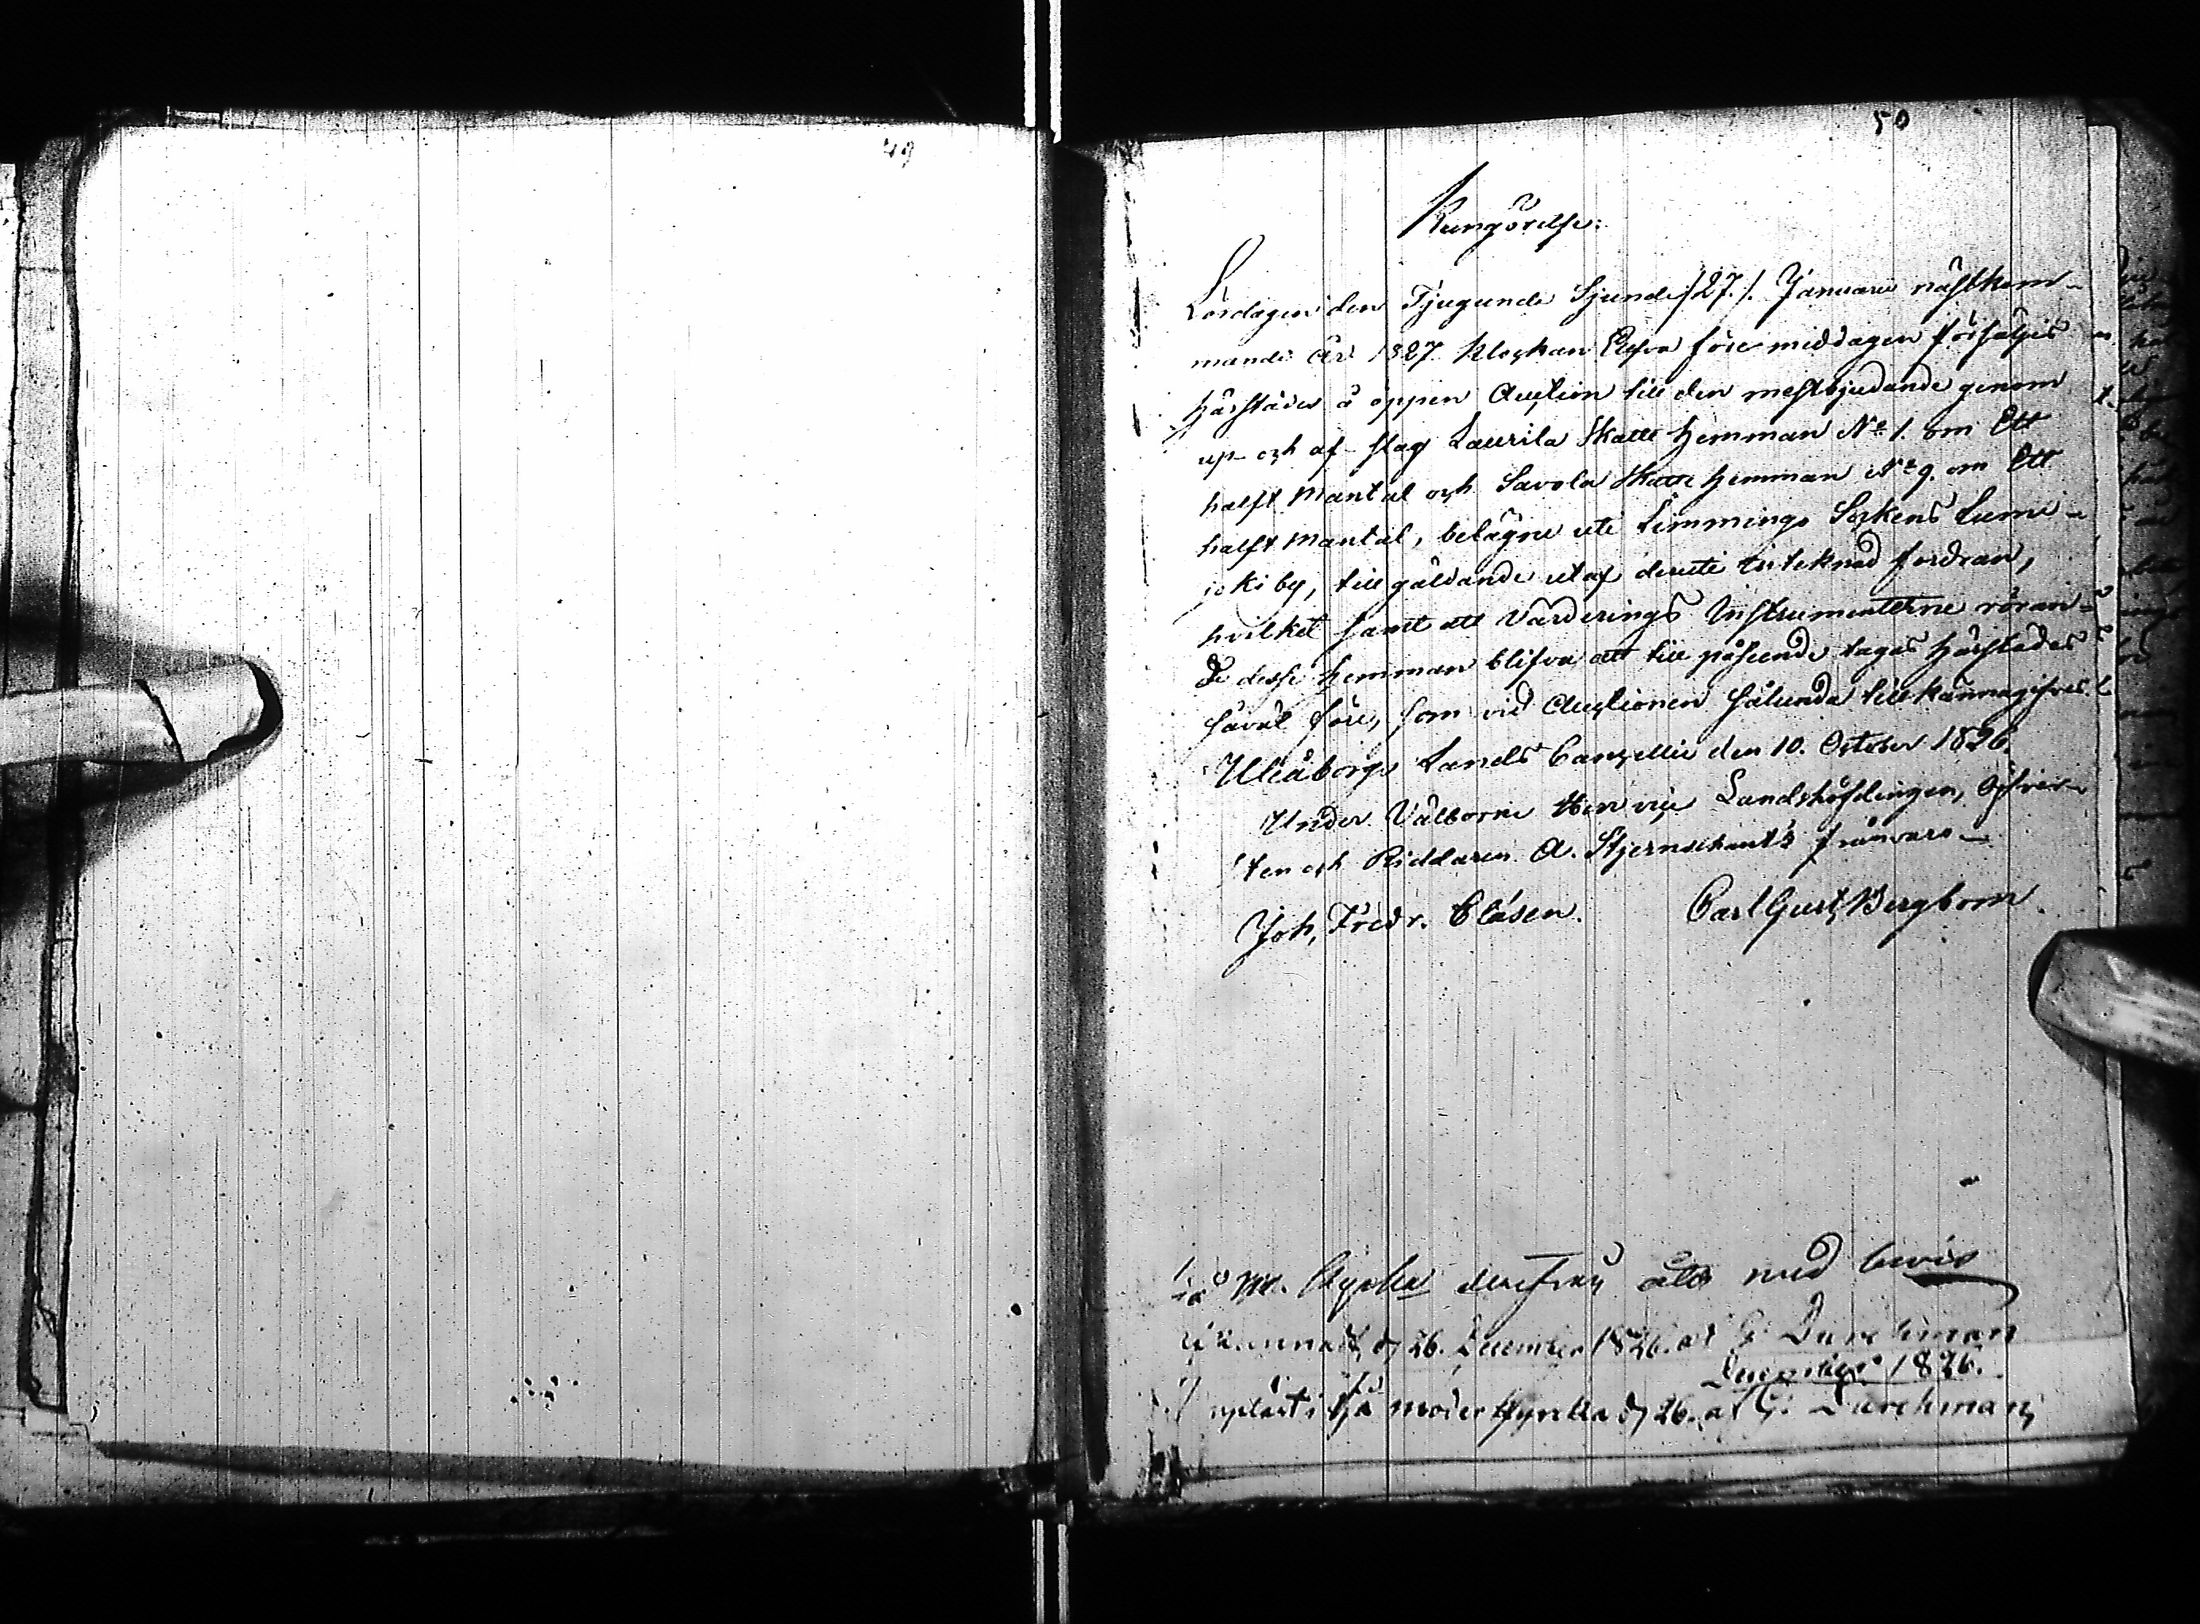 49
50
Kungörelse:
Lördagen den Tjugunde Sjunde /27./. Januarii nästkom-
mande År 1827 klockan Elfva före middagen försäljes
härstädes å öppen Auction till den mestbjudande genom
up- och af-slag Laurila Skatte Hemman No 1. om Ett
halft Mantal och Savola Skatte Hemman No 9. om Ett
halft Mantal, belägne uti Limmingo Sockens Lumi-
joki by, till gäldande utaf deruti intecknad fordran,
hvilket samt att Värderings Instrumenterne röran-
de desse Hemman blifva att till påseende tagas härstädes
såväl före, som vid Auctionen sålunda tillkännagifves.
Uleåborgs Lands Cancellie den 10. October 1826.
Under Välborne Herr vice Landshöfdingen, Öfvers-
ten och Riddaren A. Stjernschantz frånvaro
Joh, Fredr. Clásen. Carl Gust, Bergbom
med bevis
26. December 1826. af G. Durchman
December 1826.
upläst i moder kyrkan d 26. af G. Durchman,